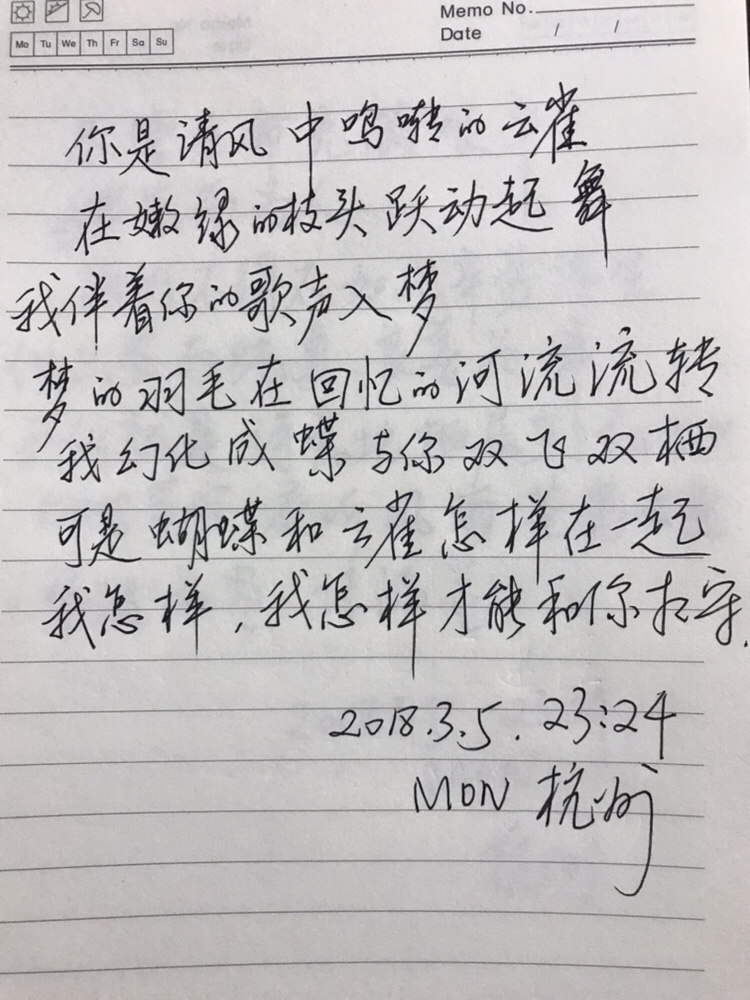 Memo No.
Mo Tu We Th Fr Sa Su
Date / /
你是清风中鸣啭的云雀
在嫩绿的枝头跃动起舞
我伴着你的歌声入梦
梦的羽毛在回忆的河流流转
我幻化成蝶与你双飞双栖
可是蝴蝶和云雀怎样在一起
我怎样,我怎样才能和你相守.
2018.3.5. 23:24
MON 杭州